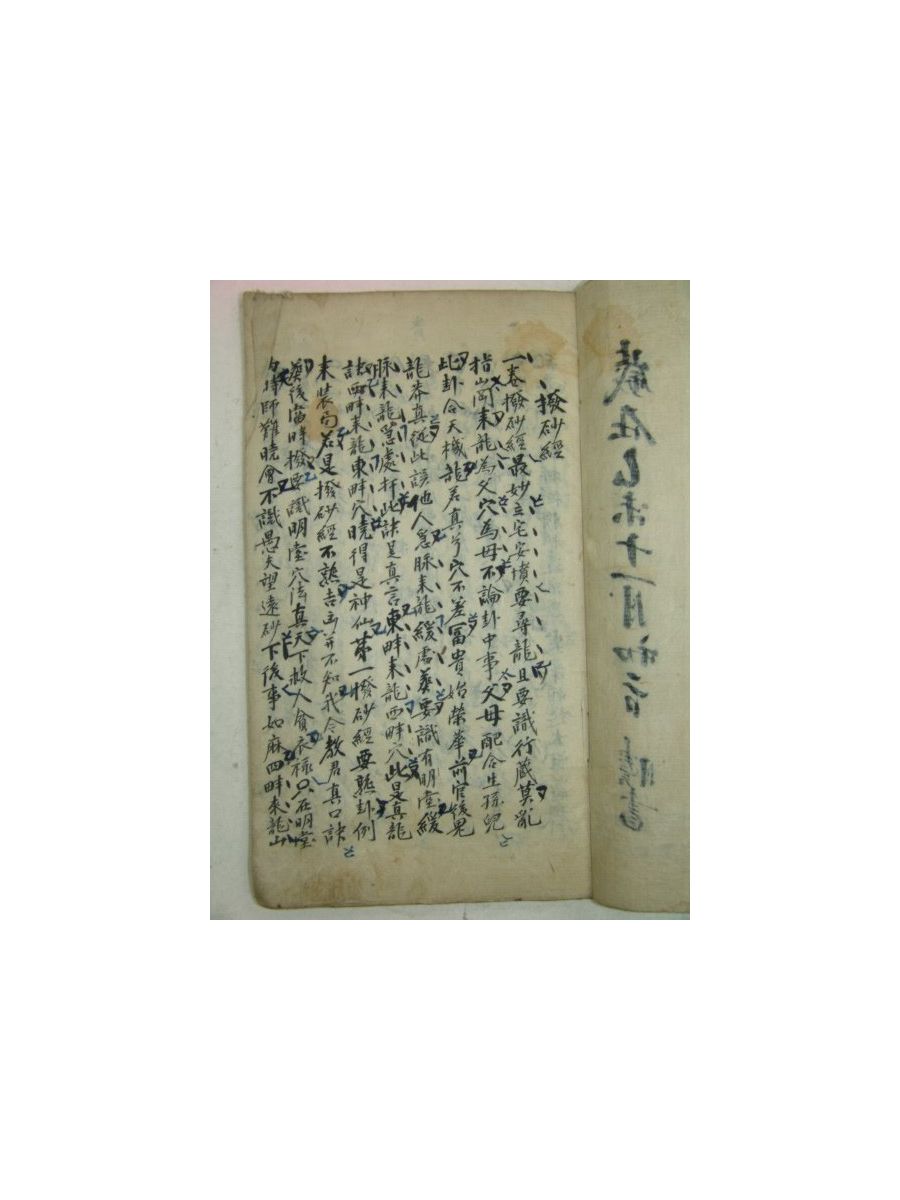 歲在己未十一月初 日 書
撥砂經
一卷撥砂經最妙立宅安墳要尋龍且要識行藏莫亂
指山岡来龍為父穴為母不論卦中事父母配合生孫兒
此卦合天機龍若真兮穴不差冨貴始荣華前官後鬼
龍莽真從此誤他人急脉来龍緩處葬要識有明堂緩
脉来龍急處扦此訣是真言東畔来龍西畔穴此是真龍
訣西畔来龍東畔穴曉得是神仙第一撥砂經要熟卦例
来装局若是撥砂經不熟吉凶并不知我今教君真口訣
葬後當時撥要識明堂穴法真天下救人貧衣祿只在明堂
時師難曉會不識愚夫望遠砂下後事如麻四畔来龍山